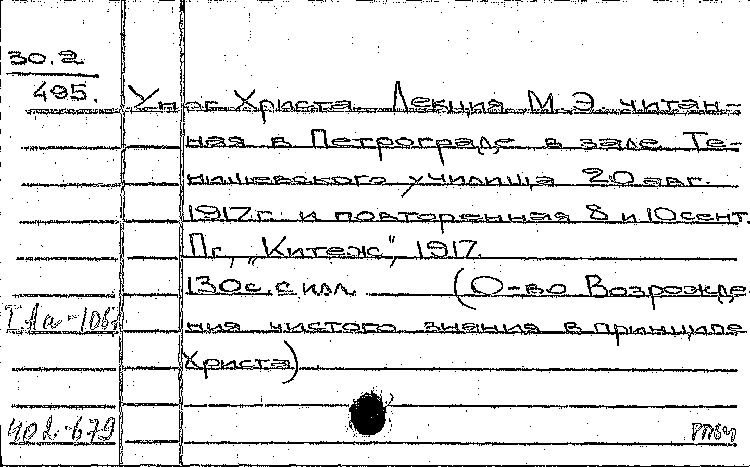 30.2
495.
У ног Христа. Лекция М.Э. читан-
ная в Петрограде в зале Те-
нишевского училища 20 авг.
1917 г. и повторенная 8 и 10 сент.
Пг., „Китеж", 1917.
130 с. с илл. (О-во Возрожде
ния чистого знания в принципе
Христа)
402-679